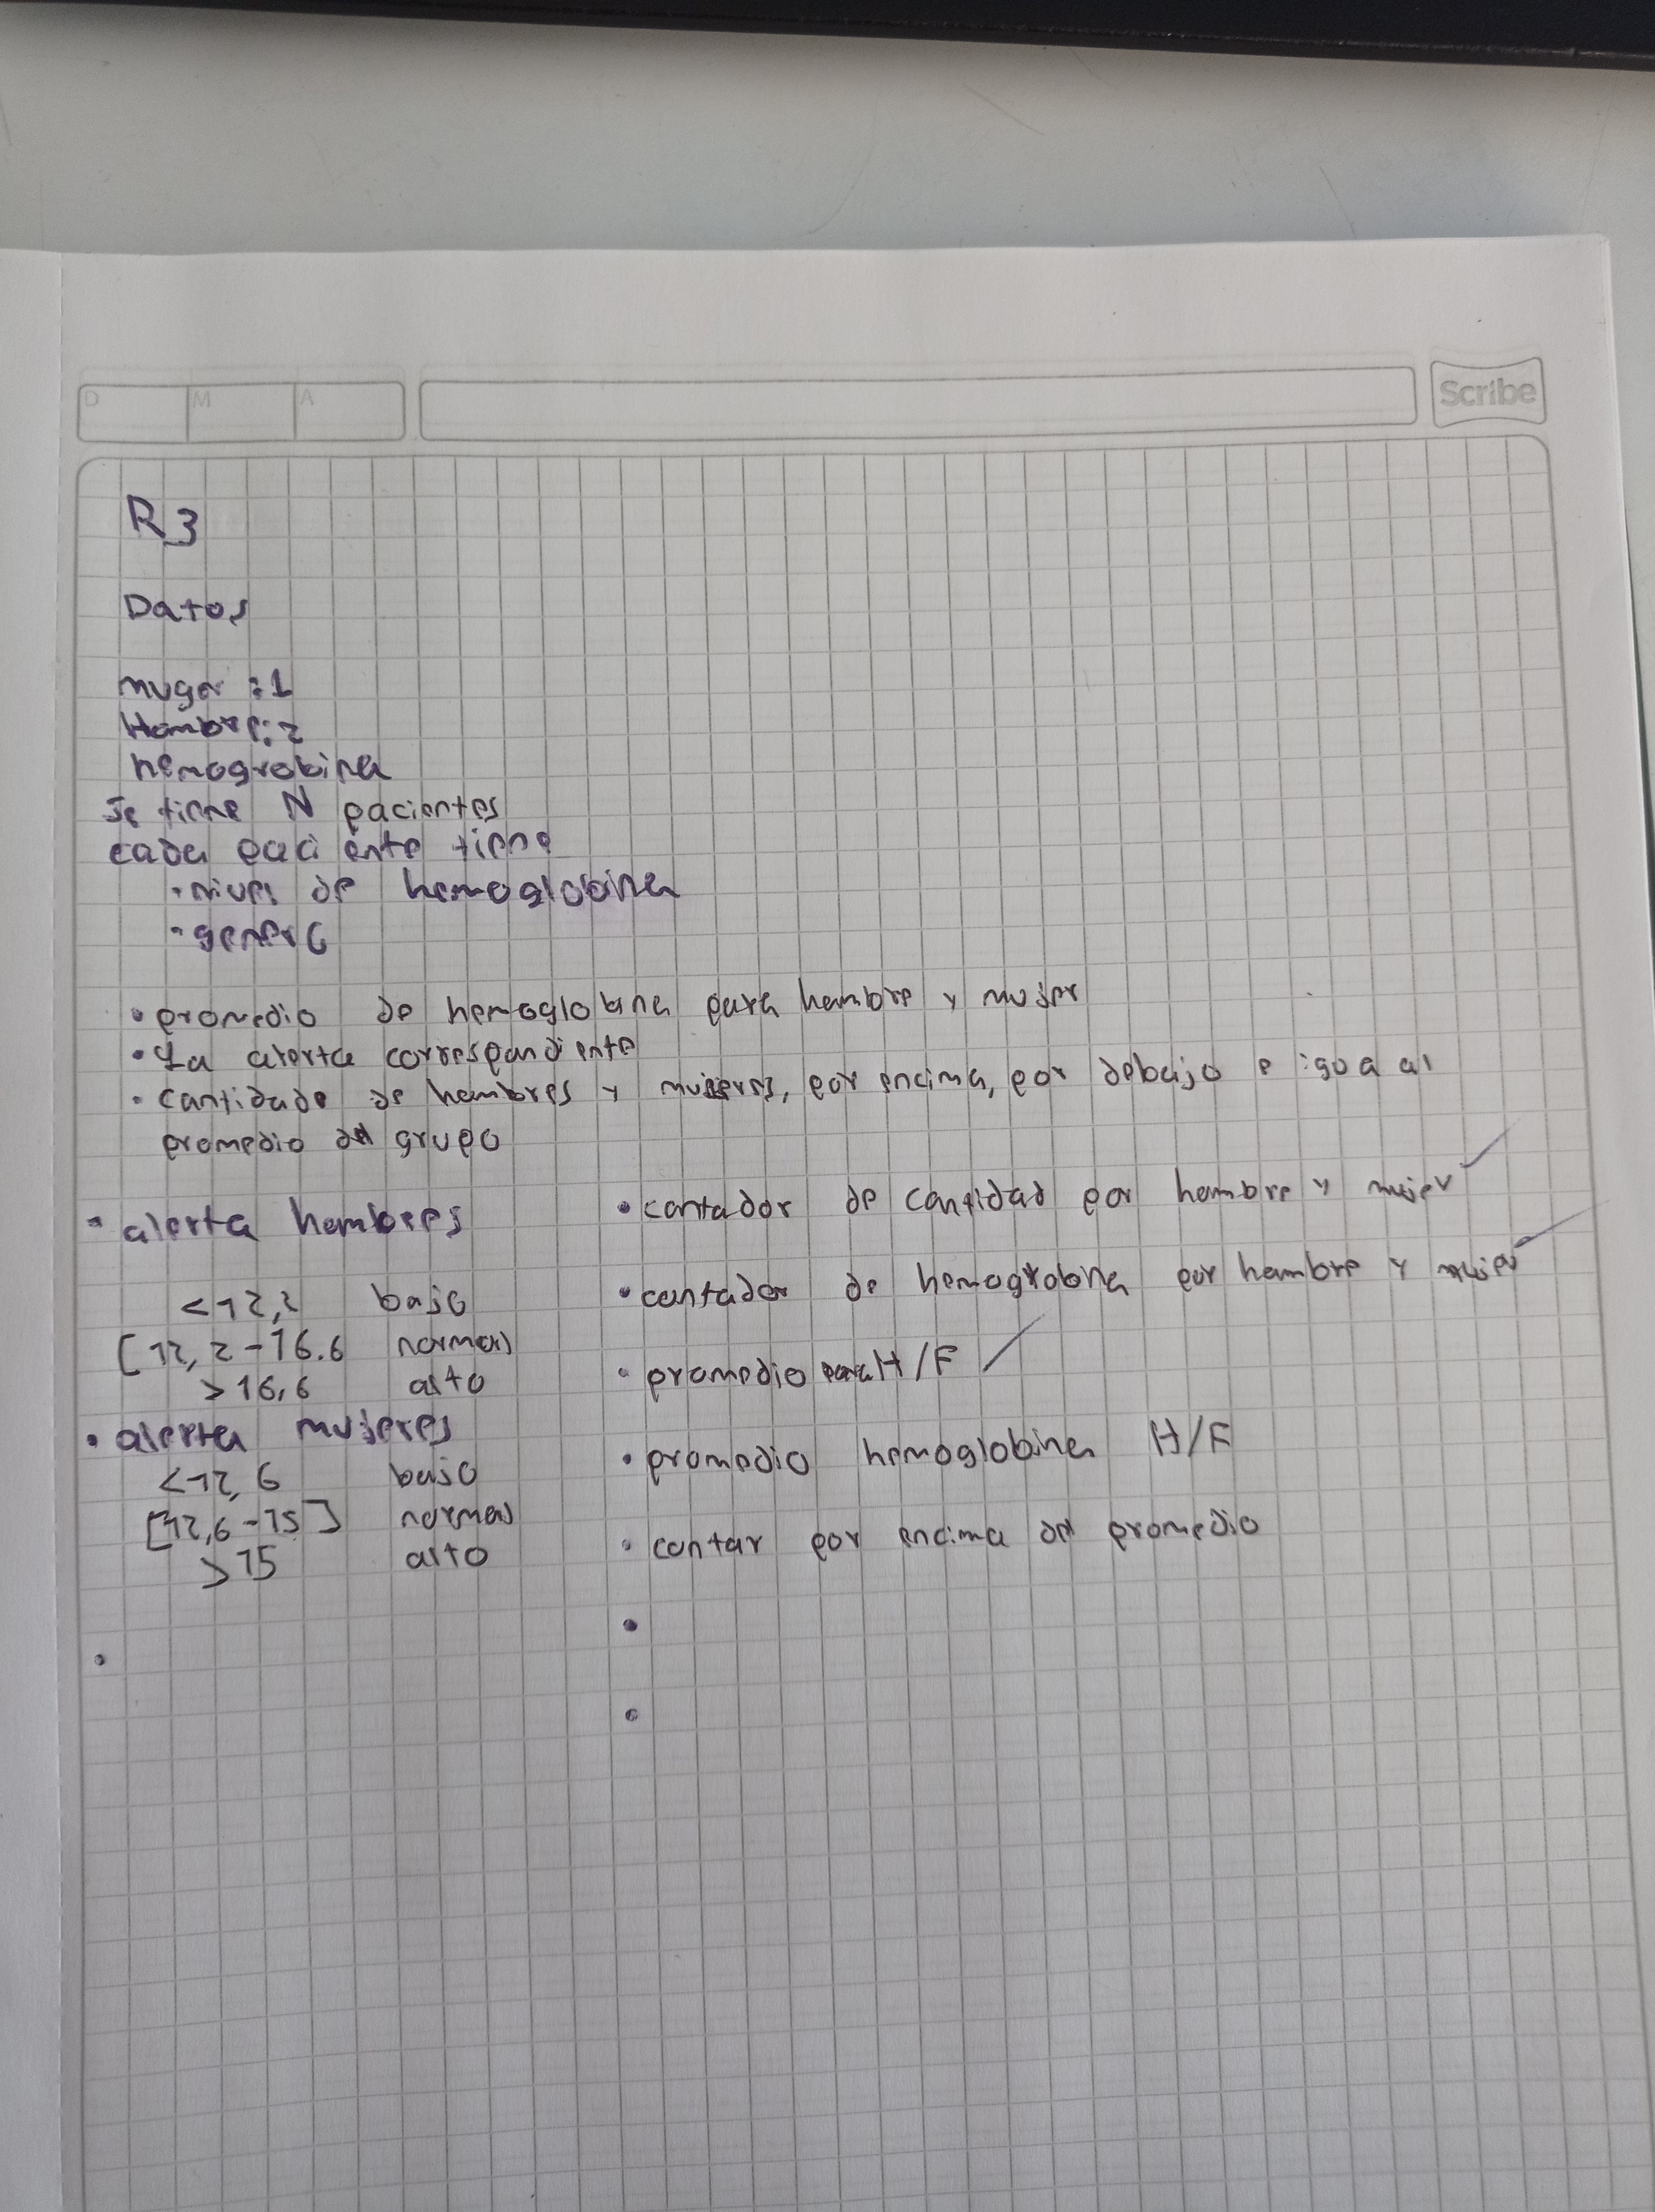 D M A
Scribe
R3
Datos
muger :1
Hombre:2
hemogrobina
se tiene N pacientes
cada paciente tiene
· nivel de hemoglobina
· genero
• promedio de hemoglobina para hombre y mujer
• La alerta correspondiente
• cantidade de hombres y mujeres, por encima, por debajo e igua al
promedio del grupo
• alerta hombres
<12,2 bajo
[12,2-16.6 normal
>16,6 alto
• alerta mujeres
<12,6 bajo
[12,6-15] normal
>15 alto
• contador de cantidad por hombre y mujer
• contador de hemogrobina por hombre y mujer
• promedio para H/F
• promedio hemoglobina H/F
• contar por encima del promedio